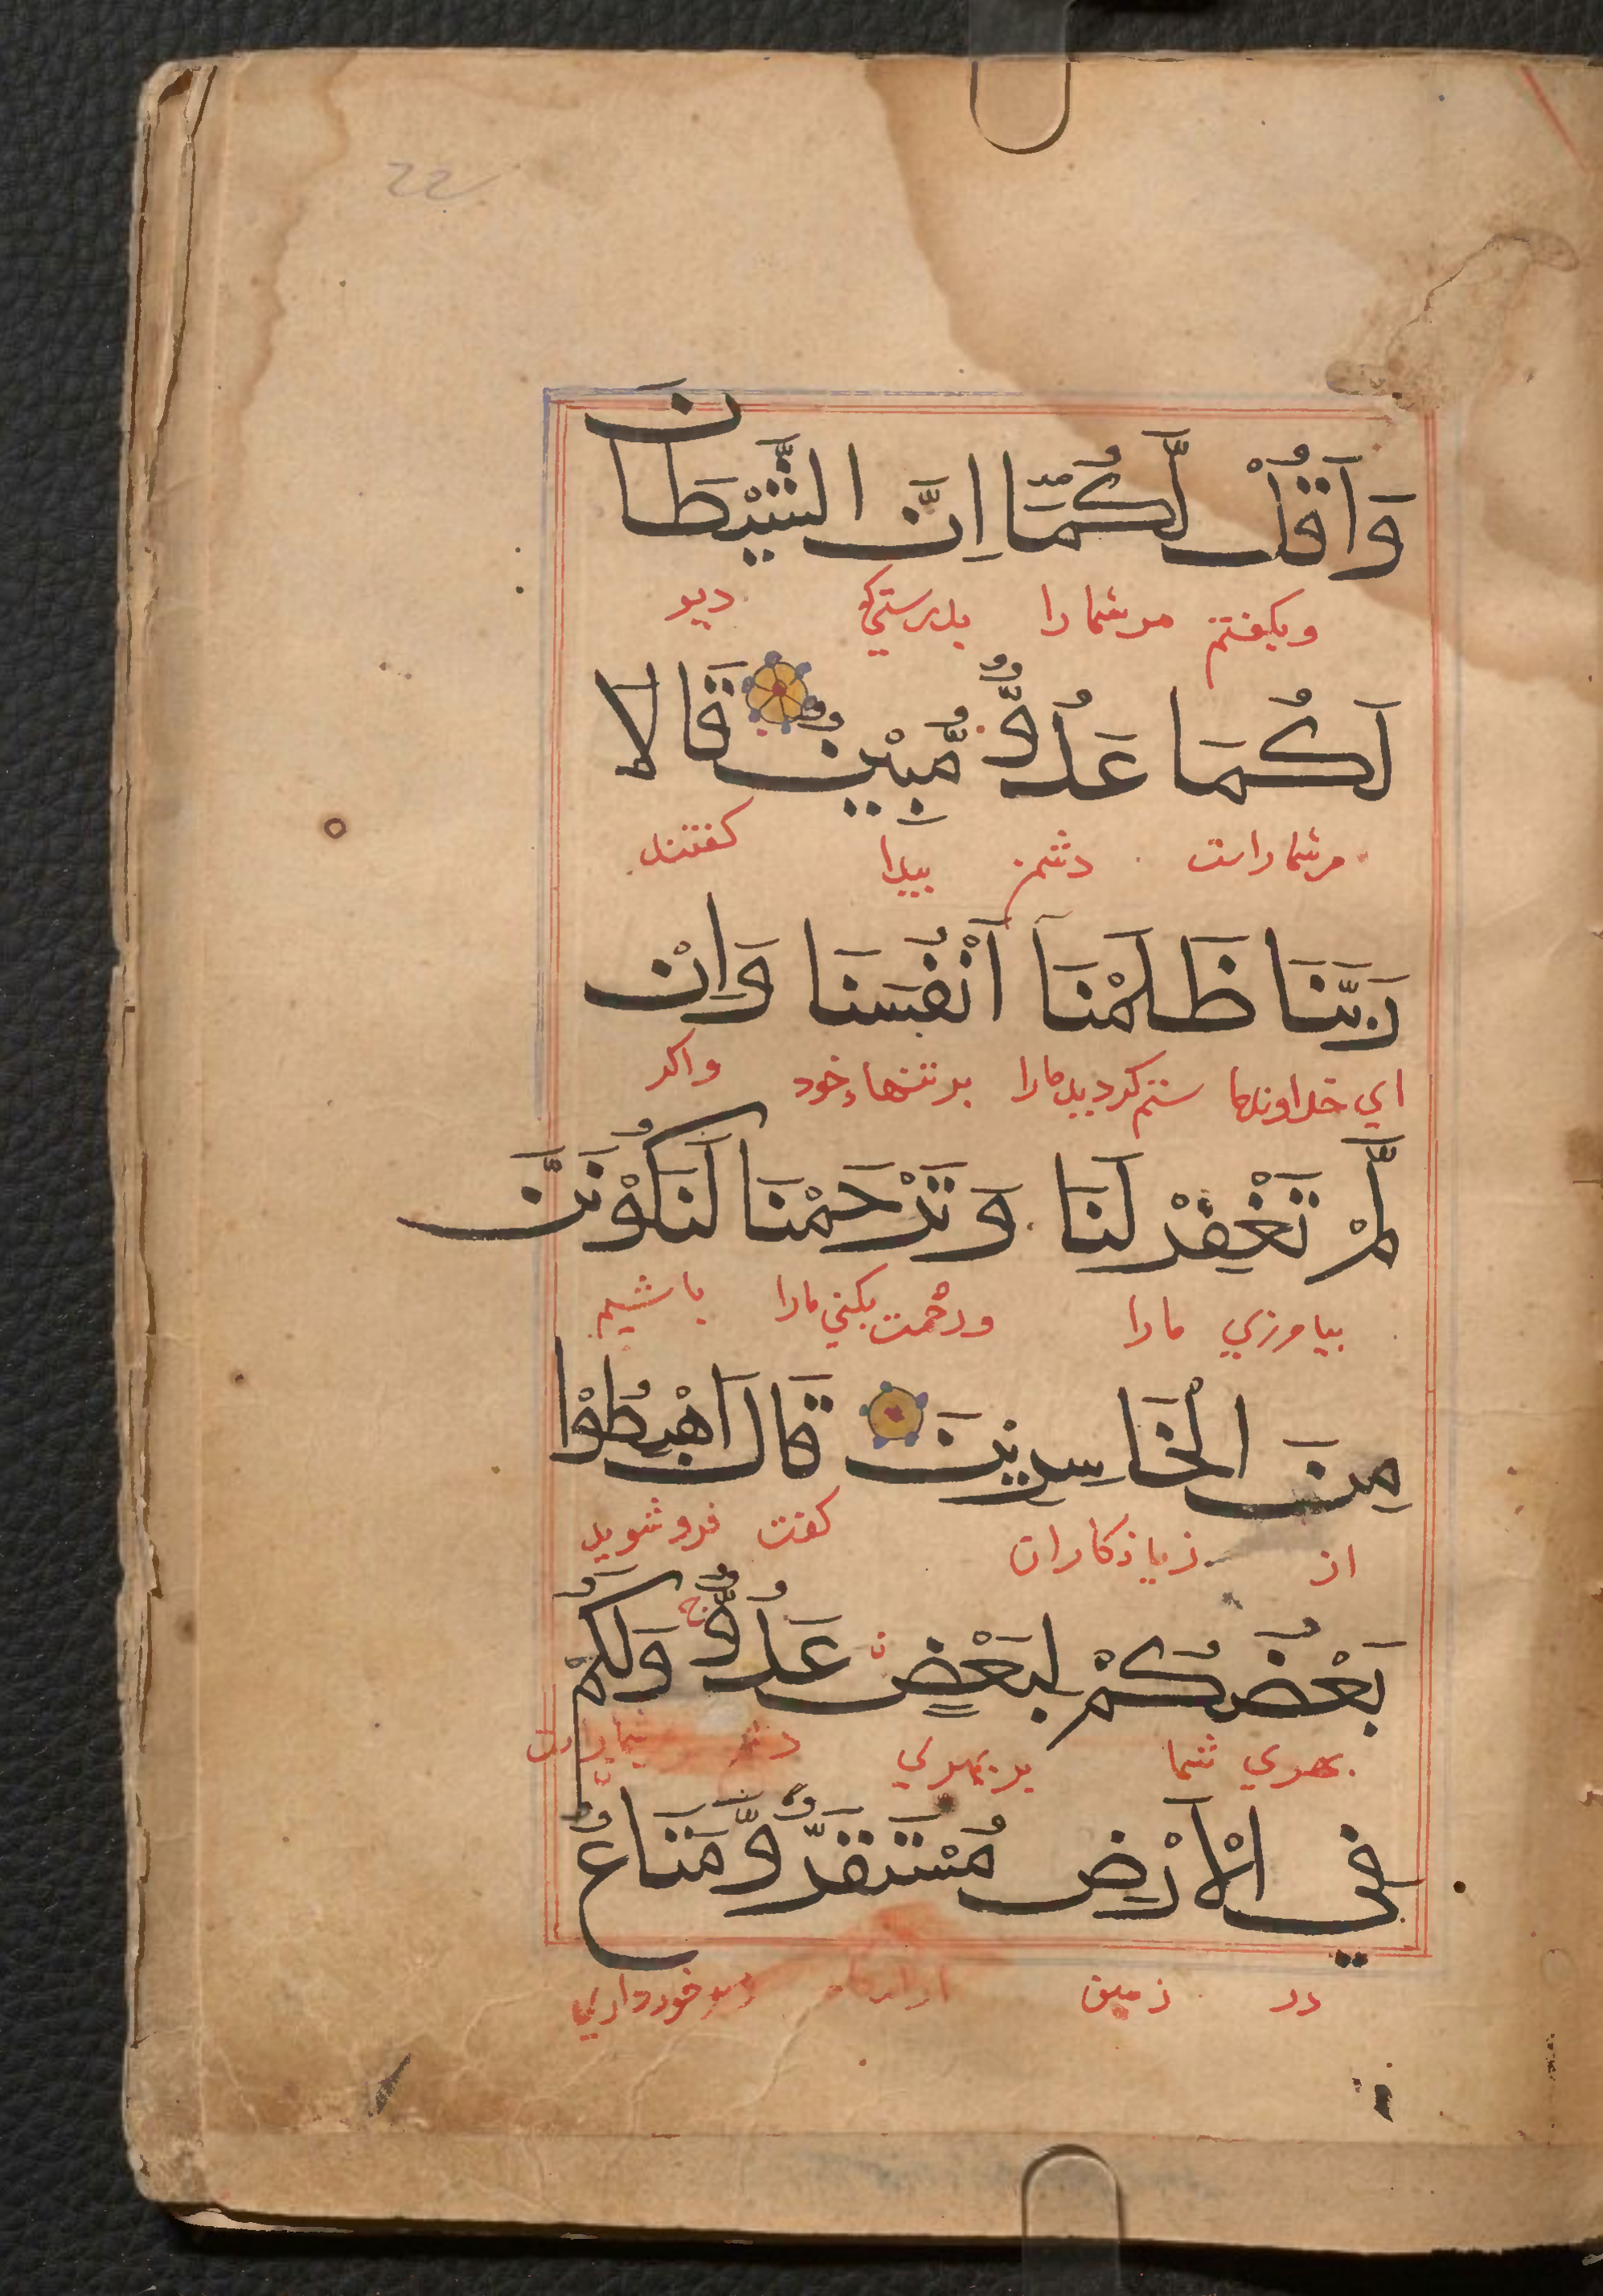 22
وَاَقُلْ لَّكُمَّا اِنَّ الشَّيْطَانَ
وبكفتم مرشما را بدرستي كه ديو
لَكُمَا عَدُوٌّ مُّبِيْنٌ قَالَا
مرشما راست دشمن بيدا كفتند
رَبَّنَا ظَلَمْنَا اَنْفُسَنَا وَاِنْ
اي خداوندما ستم كرديد مارا بر تنهاء خود واكر
لَّمْ تَغْفِرْ لَنَا وَتَرْحَمْنَا لَنَكُوْنَنَّ
بيا مرزي مارا ورحمت بكني مارا باشيم
مِنَ الْخَاسِرِيْنَ قَالَ اهْبِطُوْا
از زيا ذكاران كفت فرو شويد
بَعْضُكُمْ لِبَعْضٍ عَدُوٌّ ج وَلَكُمْ
بهري شما بر بهري
فِي الْاَرْضِ مُسْتَقَرٌّ وَّمَتَاعٌ
در زمين برخورداري